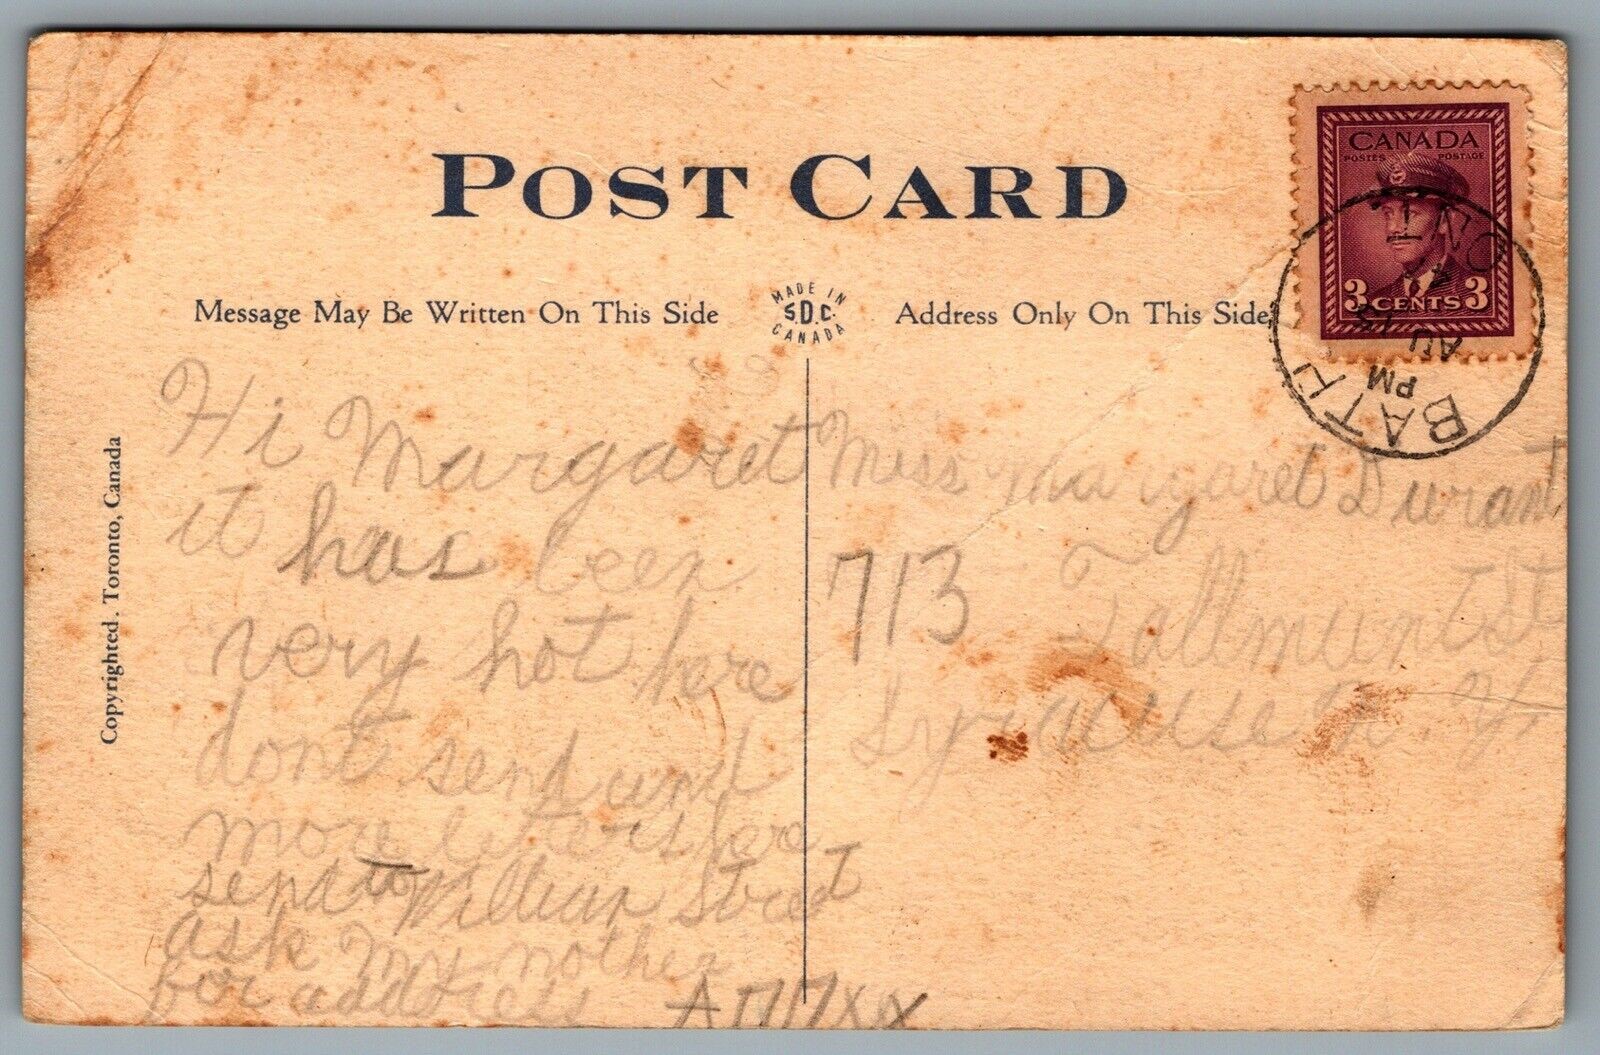 POST CARD
CANADA
POSTES POSTAGE
3 CENTS 3
BATH
ONT
PM
AU 13
Message May Be Written On This Side
MADE IN
S.D.C.
CANADA
Address Only On This Side
Copyrighted. Toronto, Canada
Hi Margaret
it has been
very hot here
dont send und
more letters here
send to William Street
ask my nother
for address
Miss Margaret Durant
713 Tallmunt St
Syracuse N. Y.